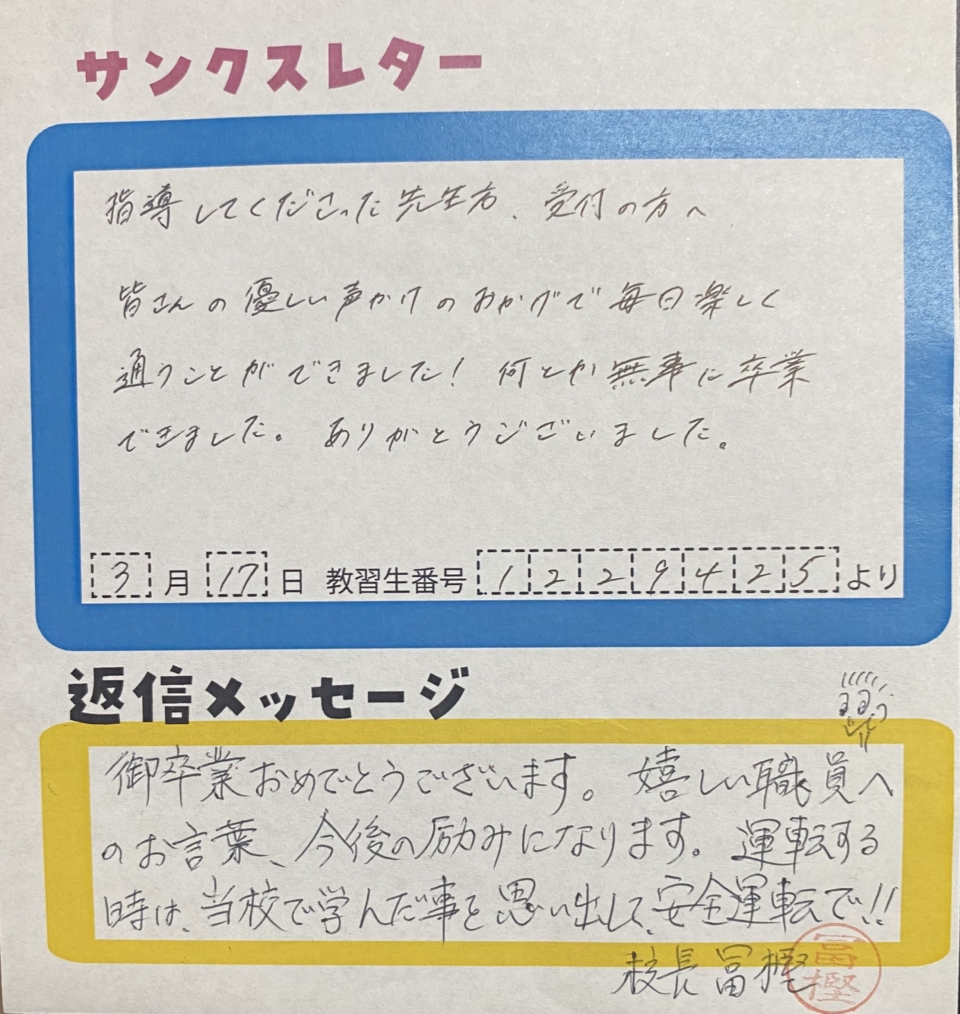 サンクスレター
指導してくださった先生方、受付の方へ
皆さんの優しい声かけのおかげで毎日楽しく
通うことができました！何とか無事に卒業
できました。ありがとうございました。
3月17日 教習生番号 1229425より
返信メッセージ
御卒業おめでとうございます。嬉しい職員へ
のお言葉、今後の励みになります。運転する
時は、当校で学んだ事を思い出して、安全運転で!!
校長 冨樫
冨樫